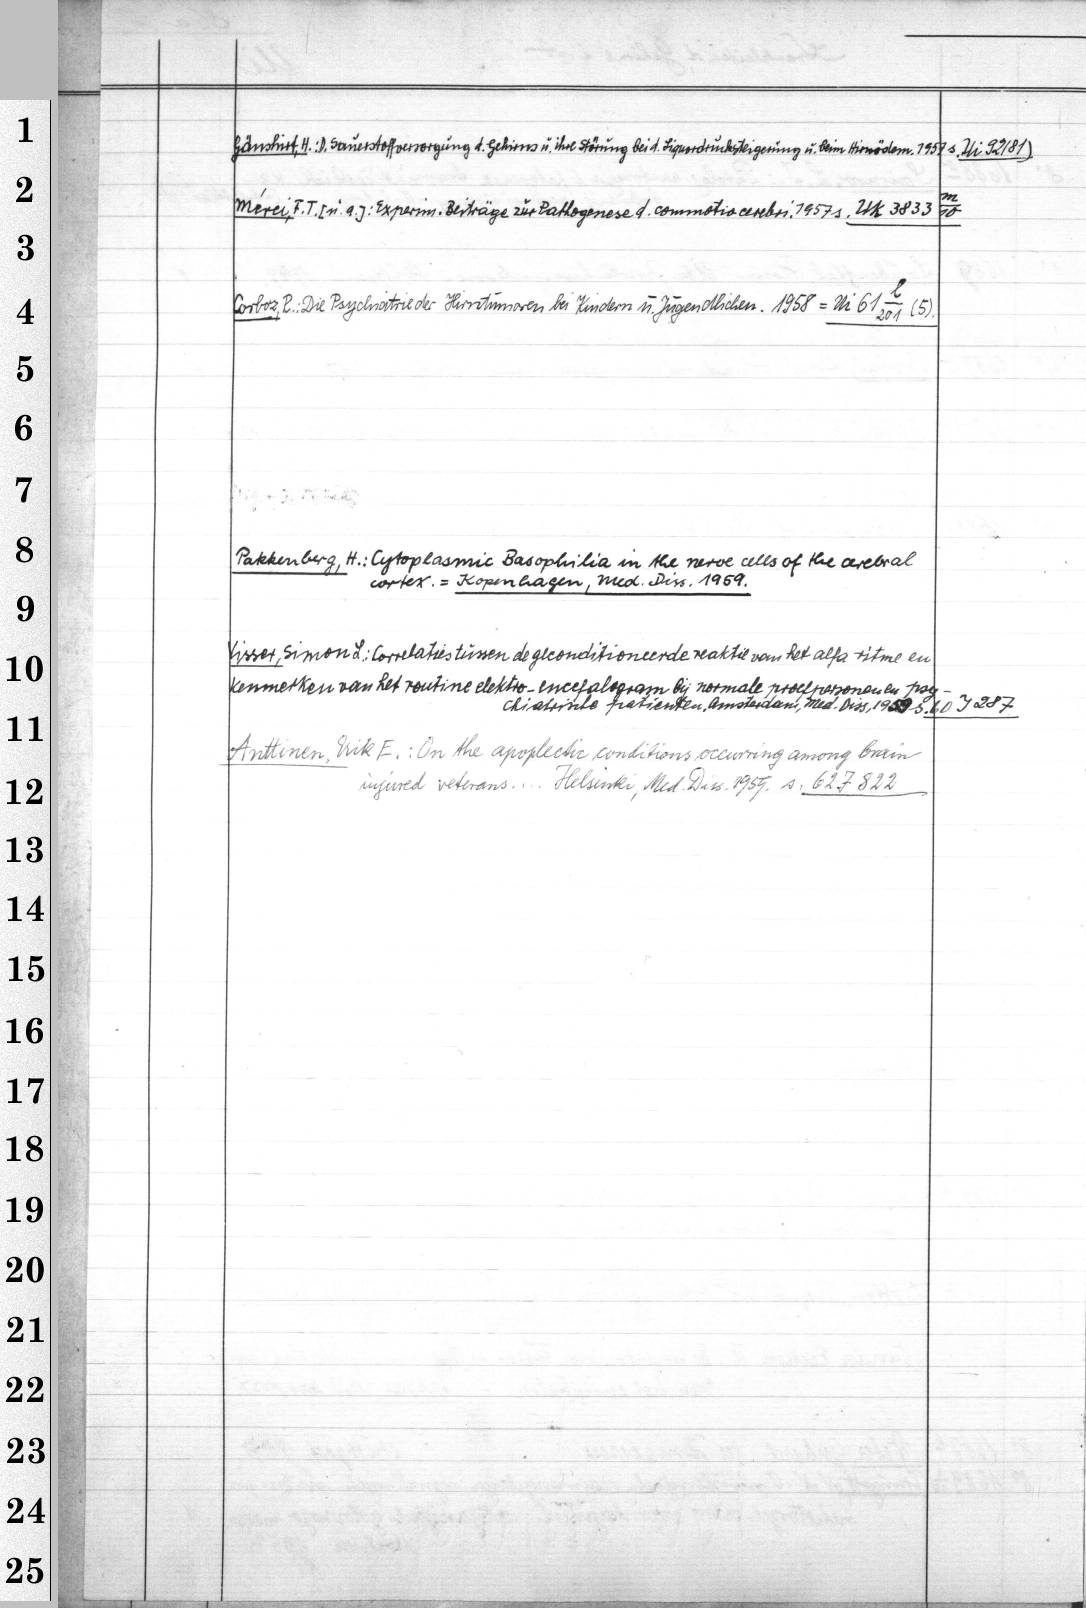 1
Gänshirt, H.: D. Sauerstoffversorgung d. Gehirns u. ihre Störung bei d. Liquordrucksteigerung u. beim Hirnödem. 1957 s. Ui 92/81)
2
Mérei, F.T. [u. a.]: Experim. Beiträge zur Pathogenese d. commotio cerebri. 1957 s. Uk 3833 m/10
3
4
Corboz, R.: Die Psychiatrie der Hirntumoren bei Kindern u. Jugendlichen. 1958 = Ui 61 l/201 (5).
5
6
7
8
Pakkenberg, H.: Cytoplasmic Basophilia in the nerve cells of the cerebral
cortex. = Kopenhagen, Med. Diss. 1959.
9
10
Visser, Simon L.: Correlaties tussen de geconditioneerde reaktie van het alfa ritme en
kenmerken van het routine elektro-encefalogram bij normale proefpersonen en psy-
chiatrische patienten, Amsterdam, Med. Diss, 1959 s. 60 J 287
11
Anttinen, Erik E.: On the apoplectic conditions occurring among brain
12
injured veterans.... Helsinki, Med. Diss. 1959. s. 627 822
13
14
15
16
17
18
19
20
21
22
23
24
25